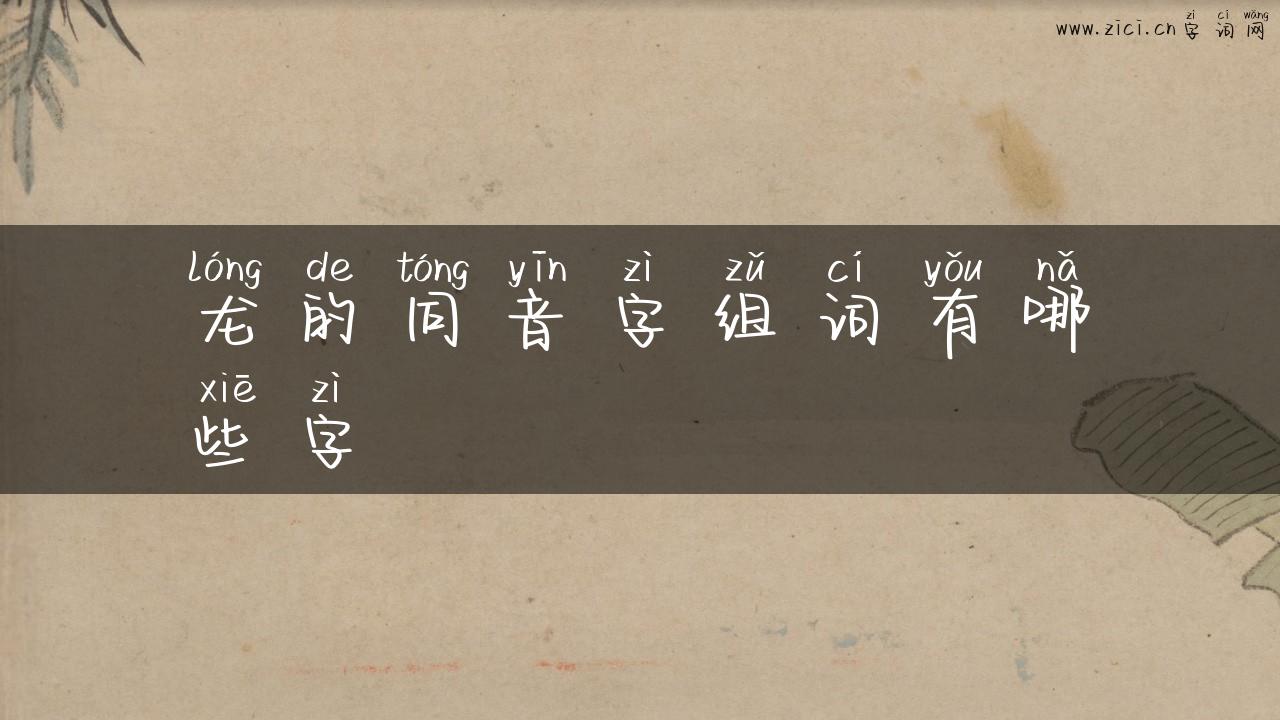 zì cí wǎng
www.zici.cn 字词网
lóng de tóng yīn zì zǔ cí yǒu nǎ
龙的同音字组词有哪
xiē zì
些字